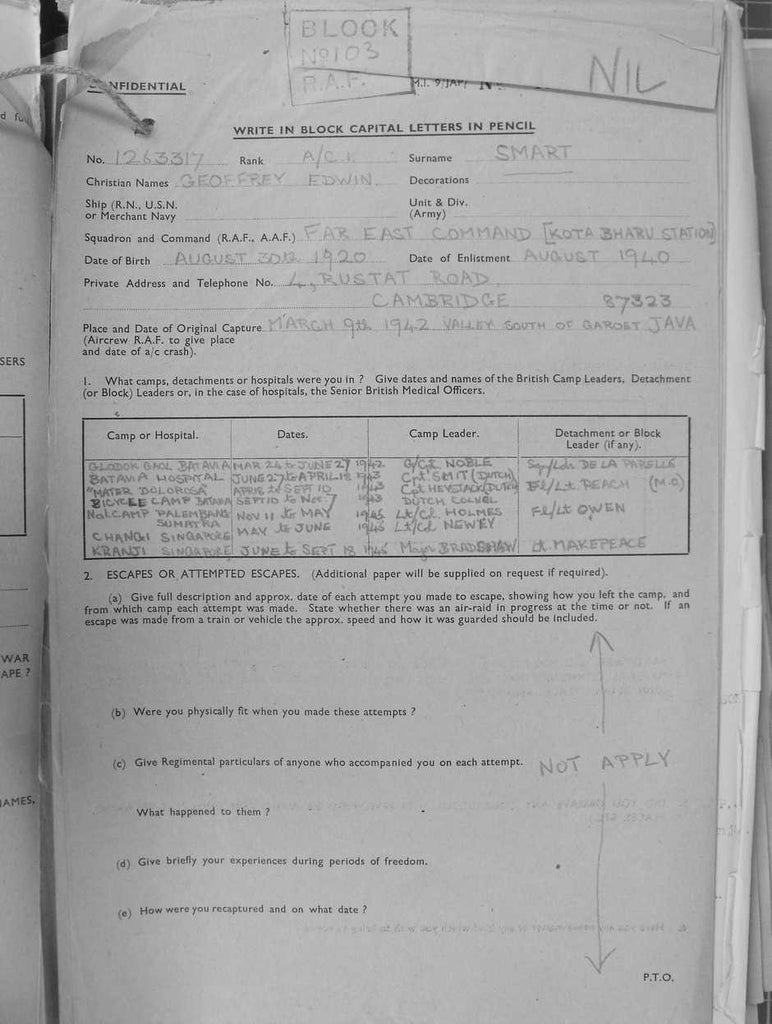 BLOCK
No 103
R.A.F.
NIL
CONFIDENTIAL
M.I. 9/JAP/
WRITE IN BLOCK CAPITAL LETTERS IN PENCIL
No. 1263317 Rank A/C 1 Surname SMART
Christian Names GEOFFREY EDWIN Decorations
Ship (R.N., U.S.N. Unit & Div.
or Merchant Navy (Army)
Squadron and Command (R.A.F., A.A.F.) FAR EAST COMMAND [KOTA BHARU STATION]
Date of Birth AUGUST 30th 1920 Date of Enlistment AUGUST 1940
Private Address and Telephone No. 4, RUSTAT ROAD
CAMBRIDGE 87323
Place and Date of Original Capture MARCH 9th 1942 VALLEY SOUTH OF GAROET JAVA
(Aircrew R.A.F. to give place
and date of a/c crash).
1. What camps, detachments or hospitals were you in ? Give dates and names of the British Camp Leaders, Detachment
(or Block) Leaders or, in the case of hospitals, the Senior British Medical Officers.
Camp or Hospital. Dates. Camp Leader. Detachment or Block
Leader (if any).
GLODOK GAOL BATAVIA MAR 24 to JUNE 27 1942 G/Cpt NOBLE Sqn/Ldr DE LA PARELLE
BATAVIA HOSPITAL JUNE 27 to APRIL 1943 Cpt SMIT (DUTCH) Fl/Lt REACH (M.O)
"MATER DOLOROSA" APRIL to SEPT 10 1943 Cpt HEYSTACK (DUTCH)
BICYCLE CAMP BATAVIA SEPT 10 to NOV 7 1943 DUTCH COLNEL
No 1 CAMP PALEMBANG SUMATRA NOV 11 to MAY 1945 Lt/Cl. HOLMES Fl/Lt OWEN
CHANGI SINGAPORE MAY to JUNE 1945 Lt/Col NEWEY
KRANJI SINGAPORE JUNE to SEPT 18 1945 Major BRADSHAW Lt. MAKEPEACE
2. ESCAPES OR ATTEMPTED ESCAPES. (Additional paper will be supplied on request if required).
(a) Give full description and approx. date of each attempt you made to escape, showing how you left the camp, and
from which camp each attempt was made. State whether there was an air-raid in progress at the time or not. If an
escape was made from a train or vehicle the approx. speed and how it was guarded should be included.
(b) Were you physically fit when you made these attempts ?
(c) Give Regimental particulars of anyone who accompanied you on each attempt.
NOT APPLY
What happened to them ?
(d) Give briefly your experiences during periods of freedom.
(e) How were you recaptured and on what date ?
P.T.O.
SERS
WAR
APE ?
AMES,